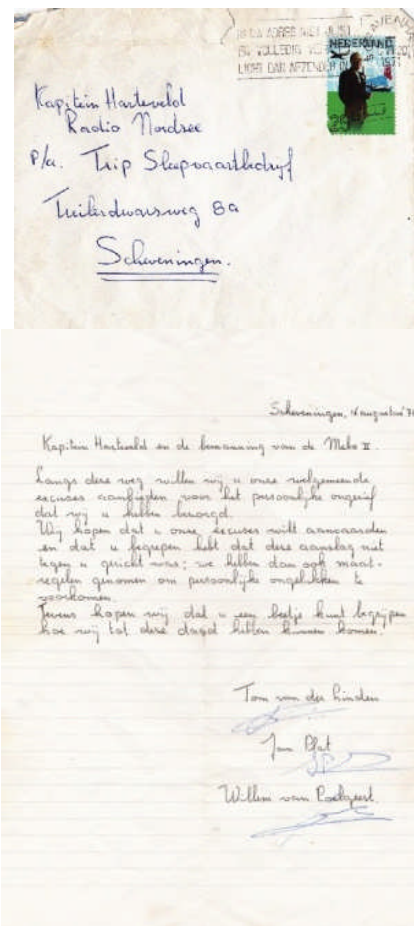 NEDERLAND
25
Kapitein Harteveld
Radio Nordzee
P/a. Trip Sleepvaartbedrijf
Treilerdwarsweg 8a
Scheveningen.
Scheveningen, augustus
Kapitein Harteveld en de bemanning van de Mebo II.
Langs deze weg willen wij u onze welgemeende
excuses aanbieden voor het persoonlijke ongerief
dat wij u hebben bezorgd.
Wij hopen dat u onze excuses wilt aanvaarden
en dat u begrepen hebt dat deze aanslag niet
tegen u gericht was; we hebben dan ook maat-
regelen genomen om persoonlijke ongelukken te
voorkomen.
Tevens hopen wij dat u een beetje kunt begrijpen
hoe wij tot deze daad hebben kunnen komen.
Tom van der Linden
Jan Plat
Willem van